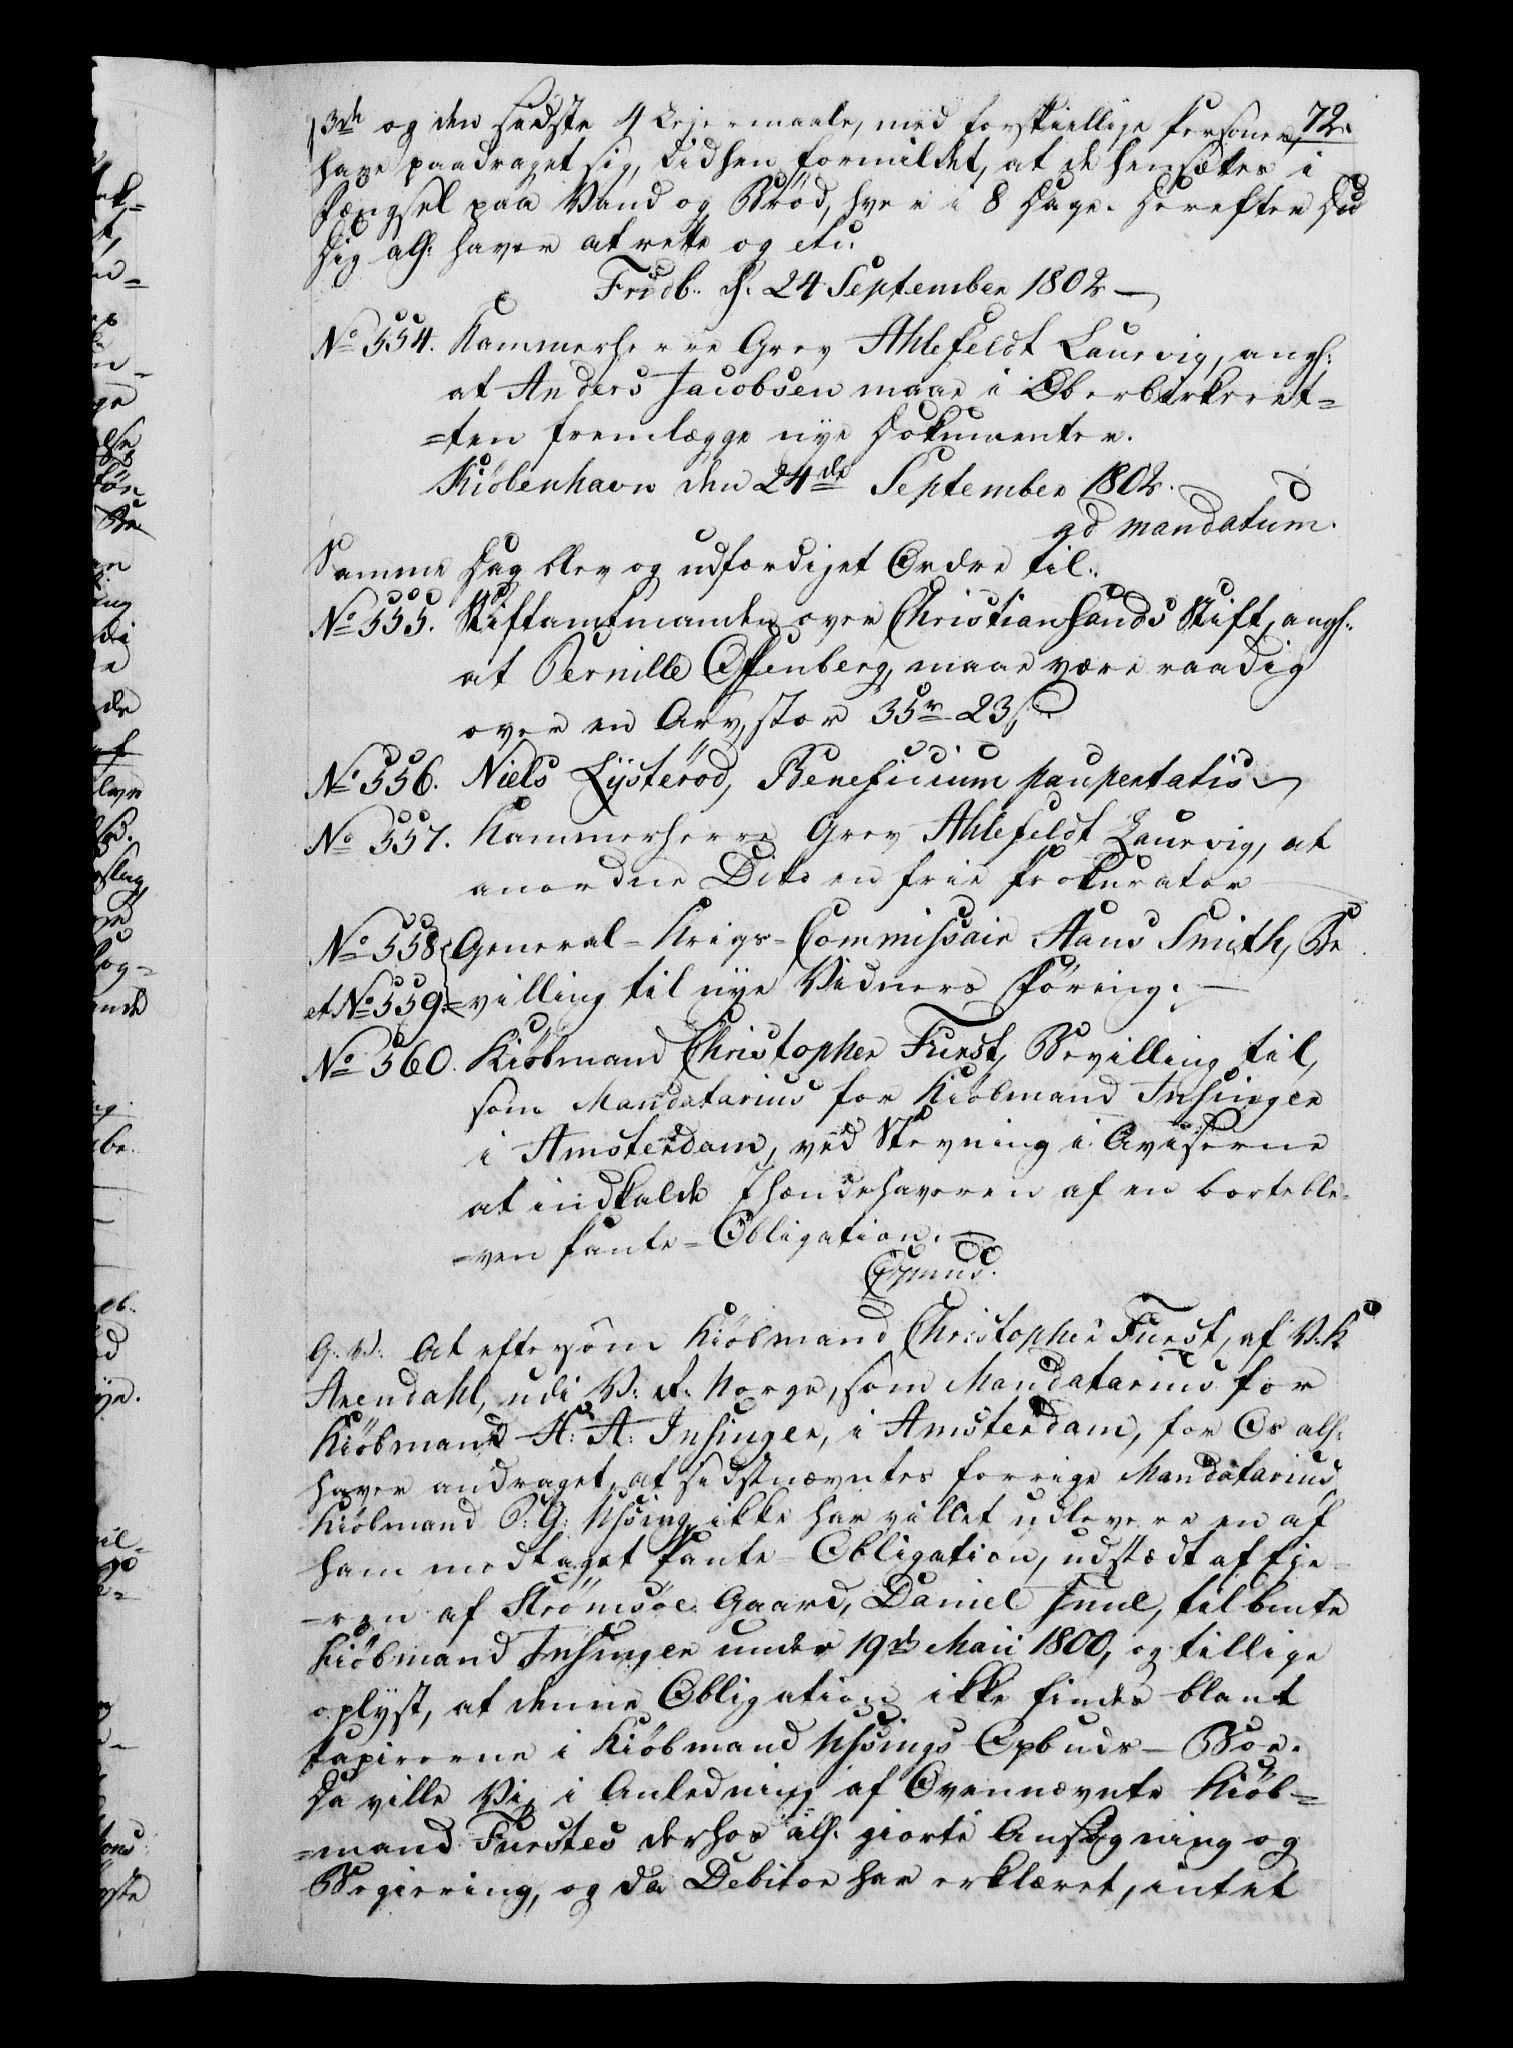 3de og den sidste 4 Lejermaale, med forskiellige Personer, 72.
have paadraget sig, Lidhen formildet, at de hensættes i
Fængsel paa Vand og Brød, hver i 8 Dage. Derefter Du
Dig alh: haver at rette og etc.
Fridb: d. 24 September 1802
No 554. Kammerherre Grev Ahlefeldt Laurvig, angh:
at Anders Jacobsen maae i Oberbirkeret=
=ten fremlægge nye Dokumenter.
Kiöbenhavn den 24de September 1802.
ad mandatum.
Samme Dag blev og udfærdiget Ordre til.
No 555. Stiftamtmanden over Christiansands Stift, angh:
at Pernille Effenberg, maae være raadig
over en Arv, stor 35r 23ß
No 556. Niels Lÿsteröd, Beneficium paupertatis
No 557. Kammerherre Grev Ahlefeldt Laurvig, at
anordne Dito en frie Prokurator
No 558 General=Krigs=Commissair Hans Smith, Be
et No 559. =villing til nye Vidners Föring.
No 560. Kiöbmand Christopher Furst, Bevilling til,
som Mandatarius for Kiöbmand Insinger
i Amsterdam, ved Stevning i Aviserne
at indkalde Ihændehaveren af en borteble=
=ven Pante=Obligation.
G: V: At eftersom Kiöbmand Christopher Furst, af V: K
Arendahl, udi V: R: Norge, som Mandatarius for
Kiöbmand H: A: Insinger, i Amsterdam, for Os alh:
haver andraget, at sidstnævntes forrige Mandatarius
Kiöbmand P: G: Ussing ikke har villet udlevere en af
ham modtaget Pante=Obligation, udstædt af Eje=
=ren af Strömsöe Gaard, Daniel Juul, til bmte
Kiöbmand Insinger under 19de Maii 1800, og tillige
oplÿst, at denne Obligation ikke findes blant
Papirerne i Kiöbmand Ussings Opbuds=Boe.
Da ville Vi, i Anledning af Ovennævnte Kiöb=
=mand Furstes derhos alh: giorte Ansögning og
Begiering, og da Debitor har erklæret, intet